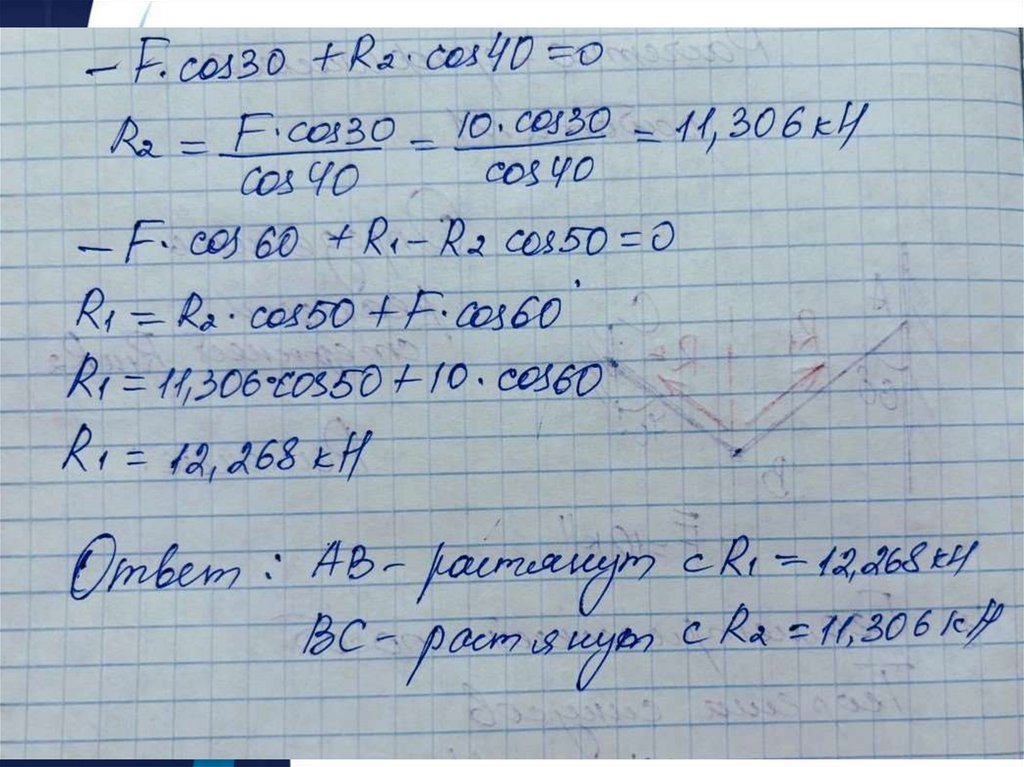 - F · cos30 + R2 · cos40 = 0
R2 = F · cos30 / cos40 = 10 · cos30 / cos40 = 11,306 кН
- F · cos60 + R1 - R2 cos50 = 0
R1 = R2 · cos50 + F · cos60
R1 = 11,306 · cos50 + 10 · cos60
R1 = 12,268 кН
Ответ: AB - растянут с R1 = 12,268 кН
BC - растянут с R2 = 11,306 кН